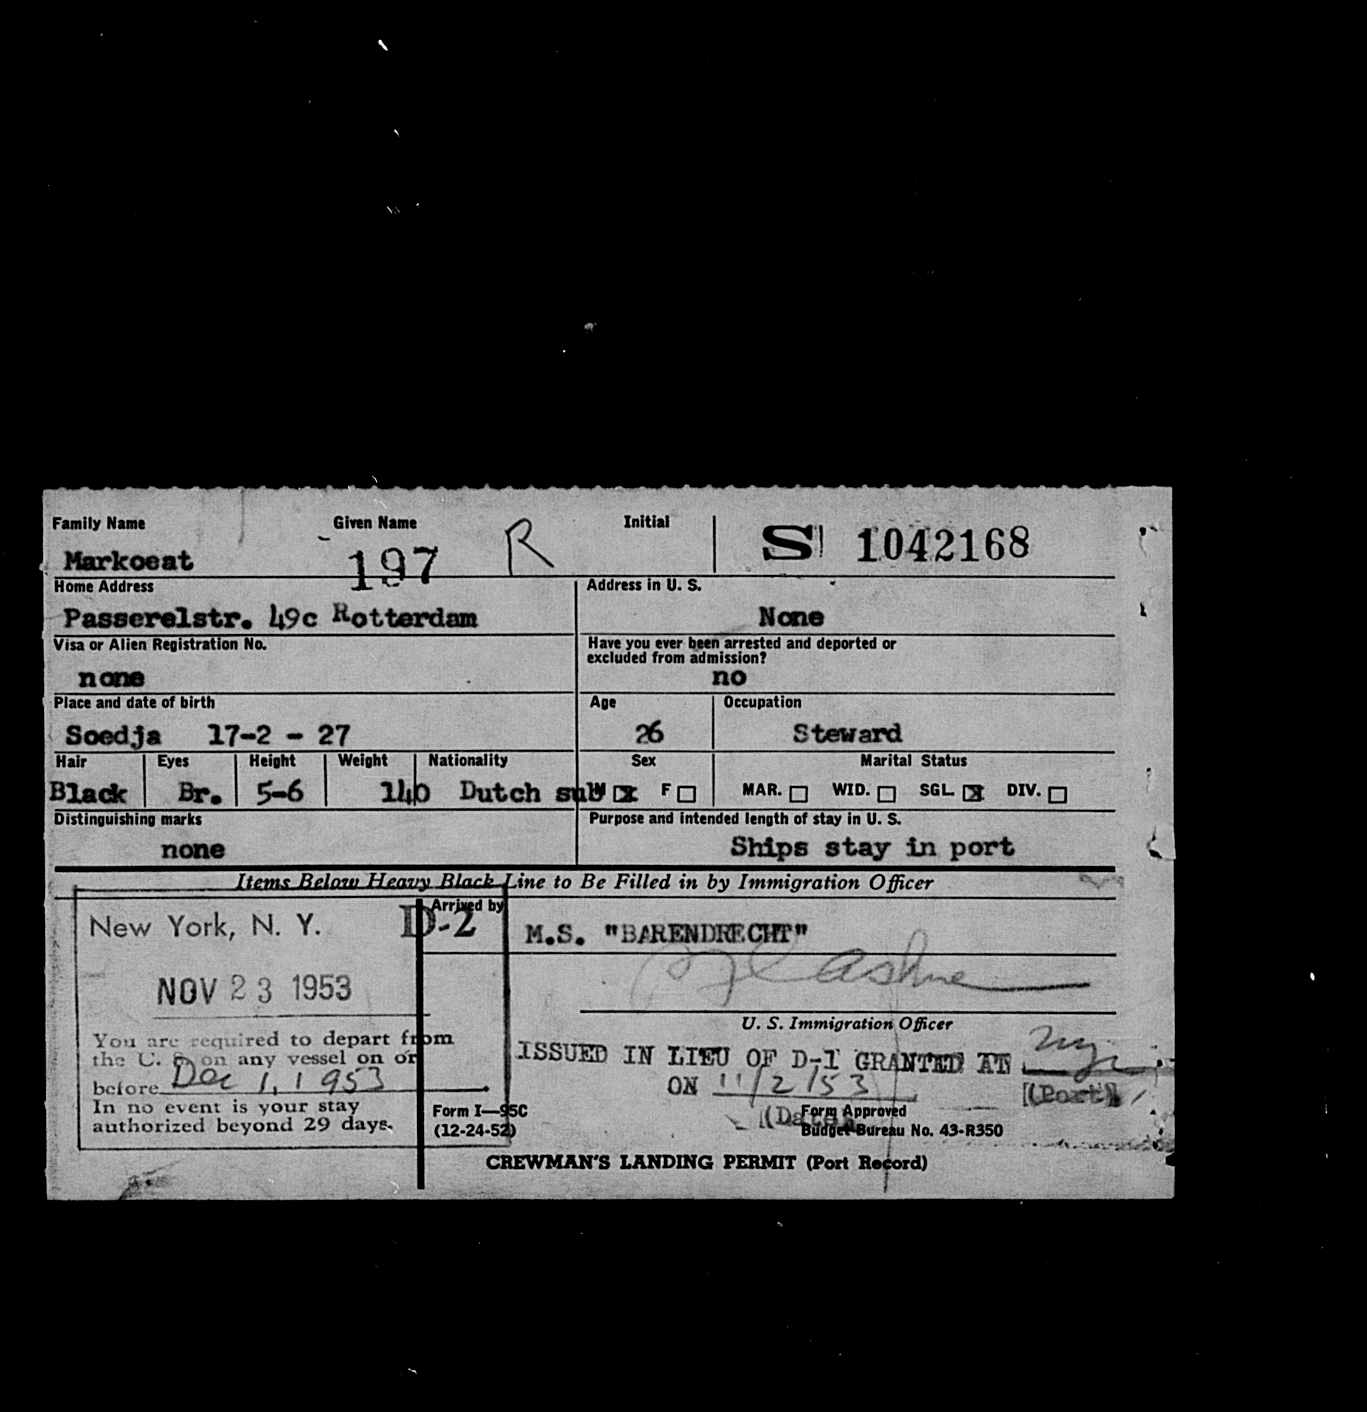 Family Name Given Name Initial
Markoeat 197 R S 1042168
Home Address Address in U. S.
Passerelstr. 49c Rotterdam None
Visa or Alien Registration No. Have you ever been arrested and deported or
excluded from admission?
none no
Place and date of birth Age Occupation
Soedja 17-2 - 27 26 Steward
Hair Eyes Height Weight Nationality Sex Marital Status
Black Br. 5-6 140 Dutch sub M x F MAR. WID. SGL. x DIV.
Distinguishing marks Purpose and intended length of stay in U. S.
none Ships stay in port
Items Below Heavy Black Line to Be Filled in by Immigration Officer
Arrived by
New York, N. Y. D-2 M.S. "BARENDRECHT"
NOV 23 1953
U. S. Immigration Officer
You are required to depart from
the U. S. on any vessel on or
before Dec 1, 1953
In no event is your stay
authorized beyond 29 days.
ISSUED IN LIEU OF D-1 GRANTED AT
ON 11/2/53 (Port)
(Date)
Form I—95C
(12-24-52)
Form Approved
Budget Bureau No. 43-R350
CREWMAN'S LANDING PERMIT (Port Record)